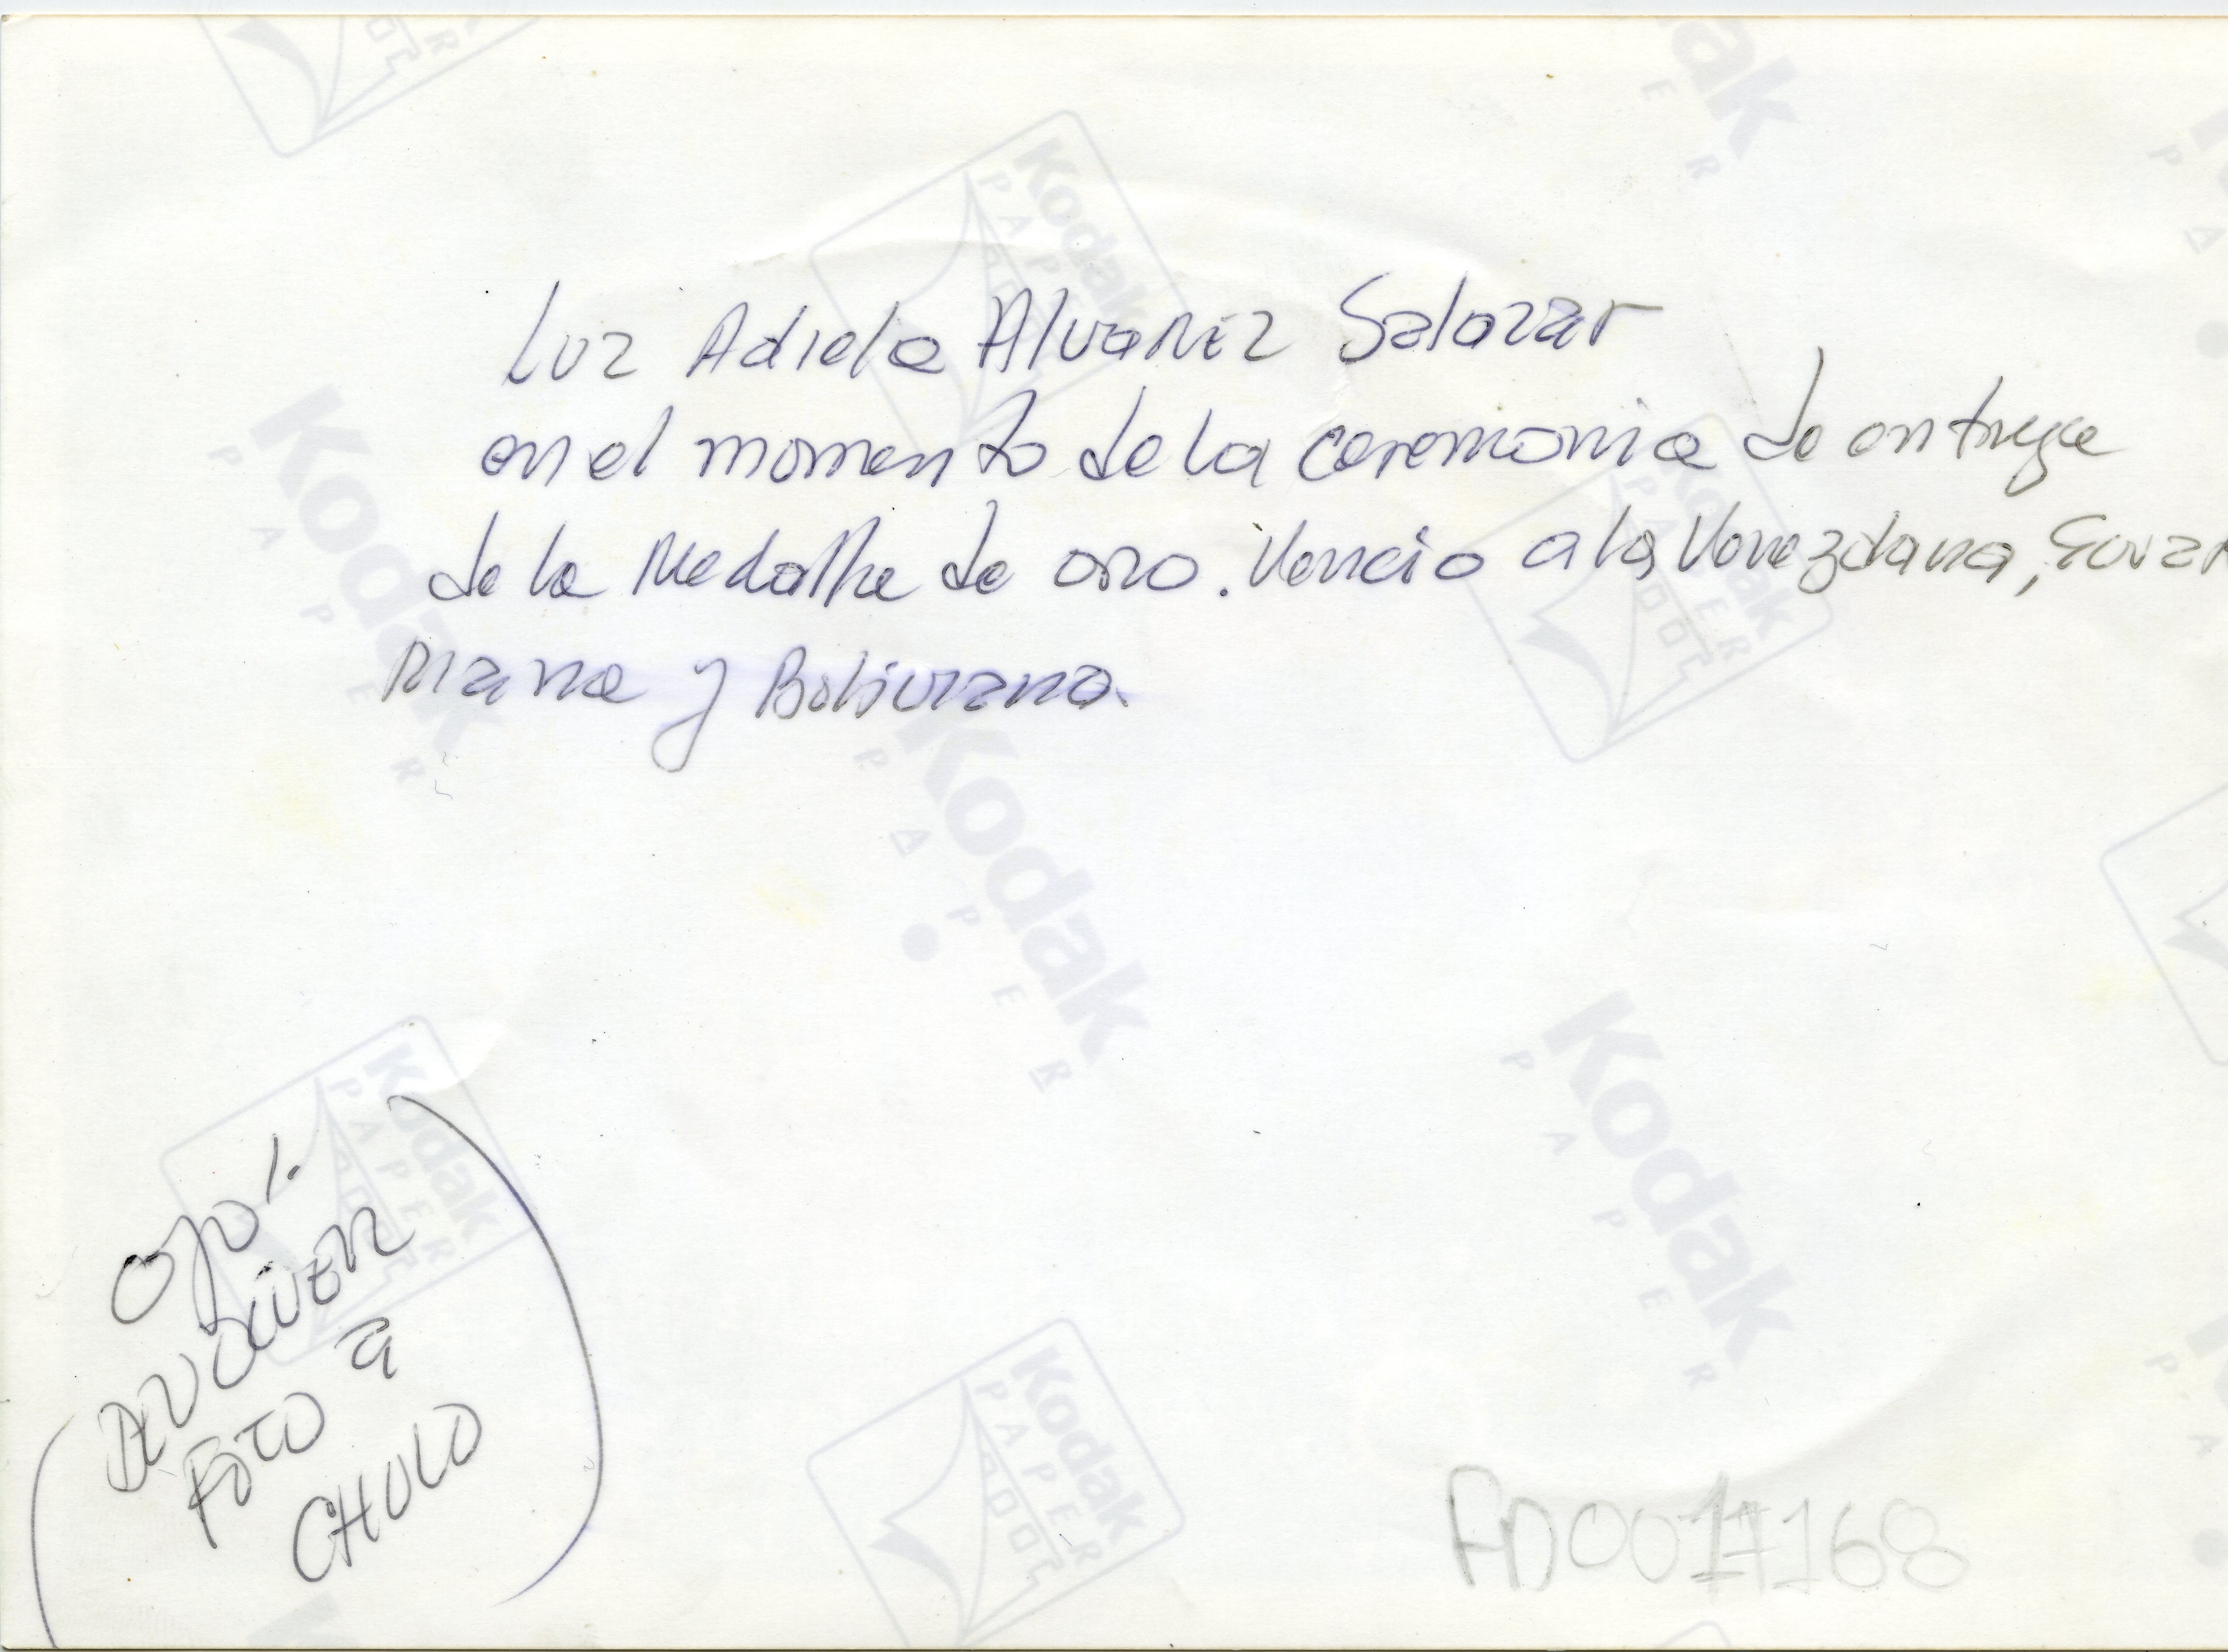 Luz Adiela Alvarez Salazar
en el momento de la ceremonia de entrega
de la Medalla de oro. Vencio a la Venezolana,
Mana y Boliviana.
Ojo!
DEVOLVER
FOTO a
CHULO
Kodak
PAPER